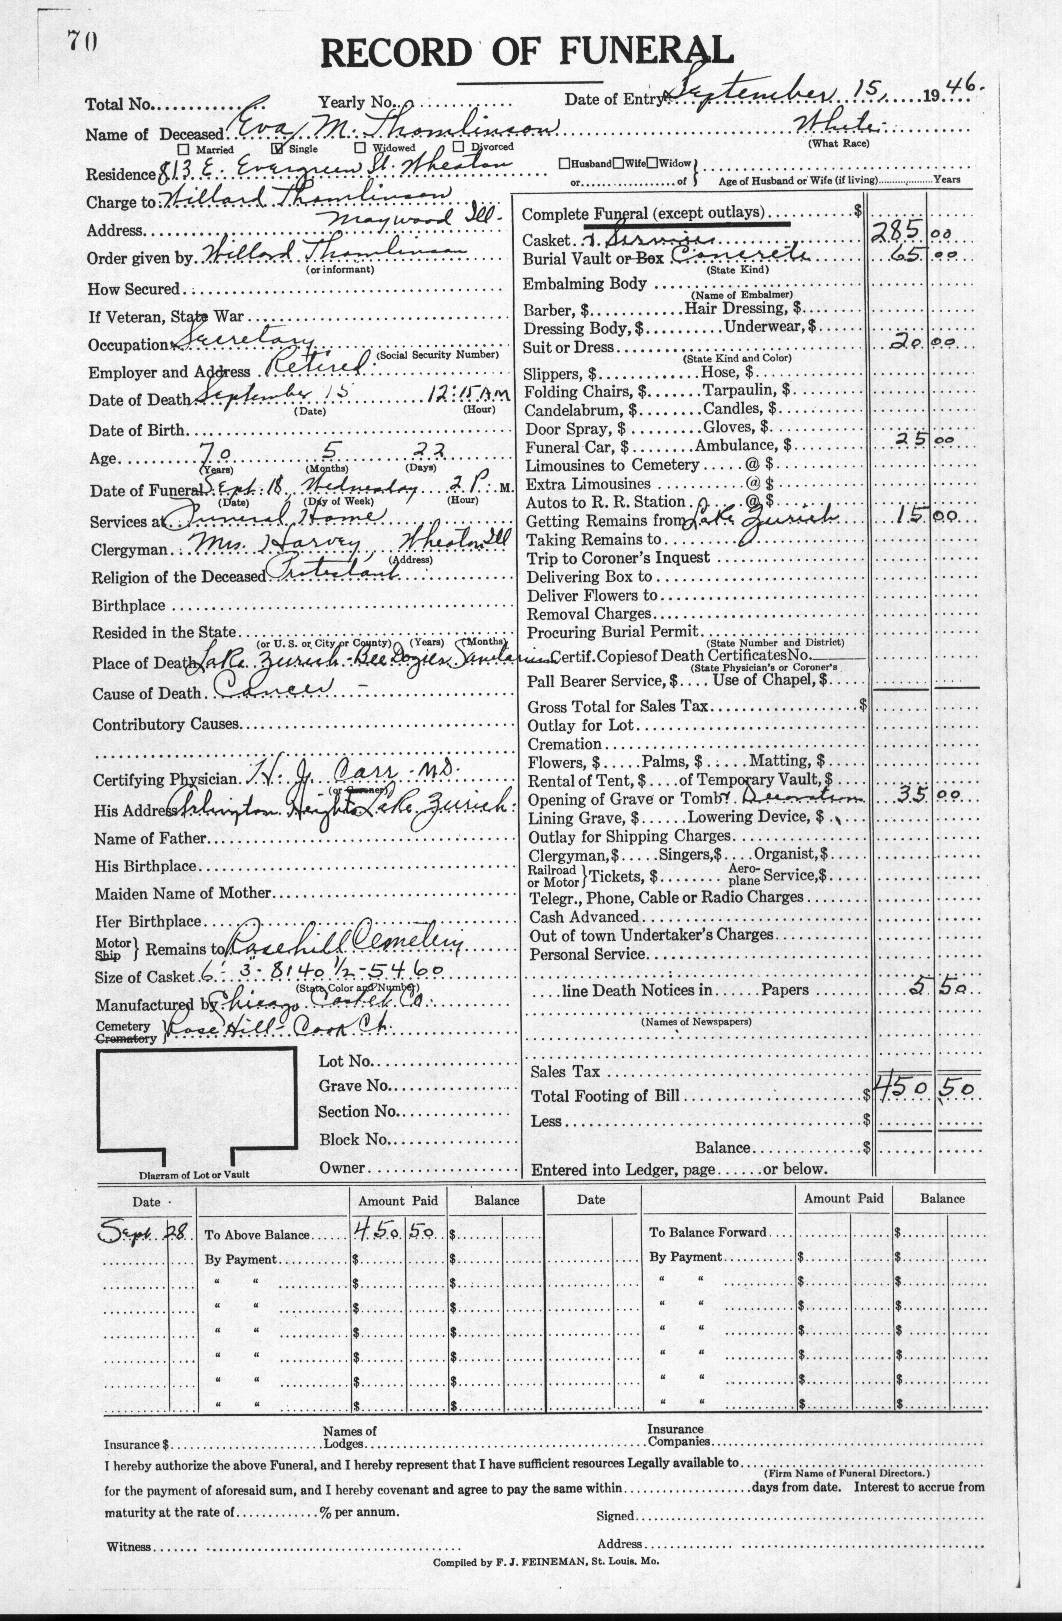 70
RECORD OF FUNERAL
Total No. Yearly No. Date of Entry September 15, 1946.
Name of Deceased Eva M. Thomlinson White
Married Single Widowed Divorced (What Race)
Residence 813 E. Evergreen St. Wheaton Husband Wife Widow
or of Age of Husband or Wife (if living) Years
Charge to Willard Thomlinson
Address Maywood Ill.
Order given by Willard Thomlinson
(or informant)
How Secured
If Veteran, State War
Occupation Secretary
(Social Security Number)
Employer and Address Retired
Date of Death September 15 12:15 AM
(Date) (Hour)
Date of Birth
Age 70 5 22
(Years) (Months) (Days)
Date of Funeral Sept. 18, Wednesday 2 P. M.
(Date) (Day of Week) (Hour)
Services at Funeral Home
Clergyman Mrs Harvey, Wheaton Ill
(Address)
Religion of the Deceased Protestant
Birthplace
Resided in the State
(or U. S. or City or County) (Years) (Months)
Place of Death Lake Zurich - Bee Dozier Sanitarium
Cause of Death Cancer -
Contributory Causes
Certifying Physician H. J. Carr M.D.
(or Coroner)
His Address Arlington Heights Lake Zurich.
Name of Father
His Birthplace
Maiden Name of Mother
Her Birthplace
Motor
Ship Remains to Rosehill Cemetery
Size of Casket 6-3-8140 1/2-5460
(State Color and Number)
Manufactured by Chicago Casket Co.
Cemetery
Crematory Rose Hill - Cook
Lot No.
Grave No.
Section No.
Block No.
Owner
Diagram of Lot or Vault
Complete Funeral (except outlays) $
Casket & Services 285 00
Burial Vault or Box Concrete 65 00
(State Kind)
Embalming Body
(Name of Embalmer)
Barber, $ Hair Dressing, $
Dressing Body, $ Underwear, $
Suit or Dress 20 00
(State Kind and Color)
Slippers, $ Hose, $
Folding Chairs, $ Tarpaulin, $
Candelabrum, $ Candles, $
Door Spray, $ Gloves, $
Funeral Car, $ Ambulance, $ 25 00
Limousines to Cemetery @ $
Extra Limousines @ $
Autos to R. R. Station @ $
Getting Remains from Lake Zurich 15 00
Taking Remains to
Trip to Coroner's Inquest
Delivering Box to
Deliver Flowers to
Removal Charges
Procuring Burial Permit
(State Number and District)
Certif. Copies of Death Certificates No.
(State Physician's or Coroner's
Pall Bearer Service, $ Use of Chapel, $
Gross Total for Sales Tax $
Outlay for Lot
Cremation
Flowers, $ Palms, $ Matting, $
Rental of Tent, $ of Temporary Vault, $
Opening of Grave or Tomb & Decorations 35 00
Lining Grave, $ Lowering Device, $
Outlay for Shipping Charges
Clergyman, $ Singers, $ Organist, $
Railroad
or Motor Tickets, $ Aero-
plane Service, $
Telegr., Phone, Cable or Radio Charges
Cash Advanced
Out of town Undertaker's Charges
Personal Service
line Death Notices in Papers 5 50
(Names of Newspapers)
Sales Tax
Total Footing of Bill $ 450 50
Less $
Balance $
Entered into Ledger, page or below.
Date Amount Paid Balance Date Amount Paid Balance
Sept. 28 To Above Balance 450 50 $ To Balance Forward $
By Payment $ $ By Payment $ $
" " $ $ " " $ $
" " $ $ " " $ $
" " $ $ " " $ $
" " $ $ " " $ $
" " $ $ " " $ $
" " $ $ " " $ $
Insurance $ Names of Lodges Insurance Companies
I hereby authorize the above Funeral, and I hereby represent that I have sufficient resources Legally available to
(Firm Name of Funeral Directors.)
for the payment of aforesaid sum, and I hereby covenant and agree to pay the same within days from date. Interest to accrue from
maturity at the rate of % per annum. Signed
Witness Address
Compiled by F. J. FEINEMAN, St. Louis, Mo.